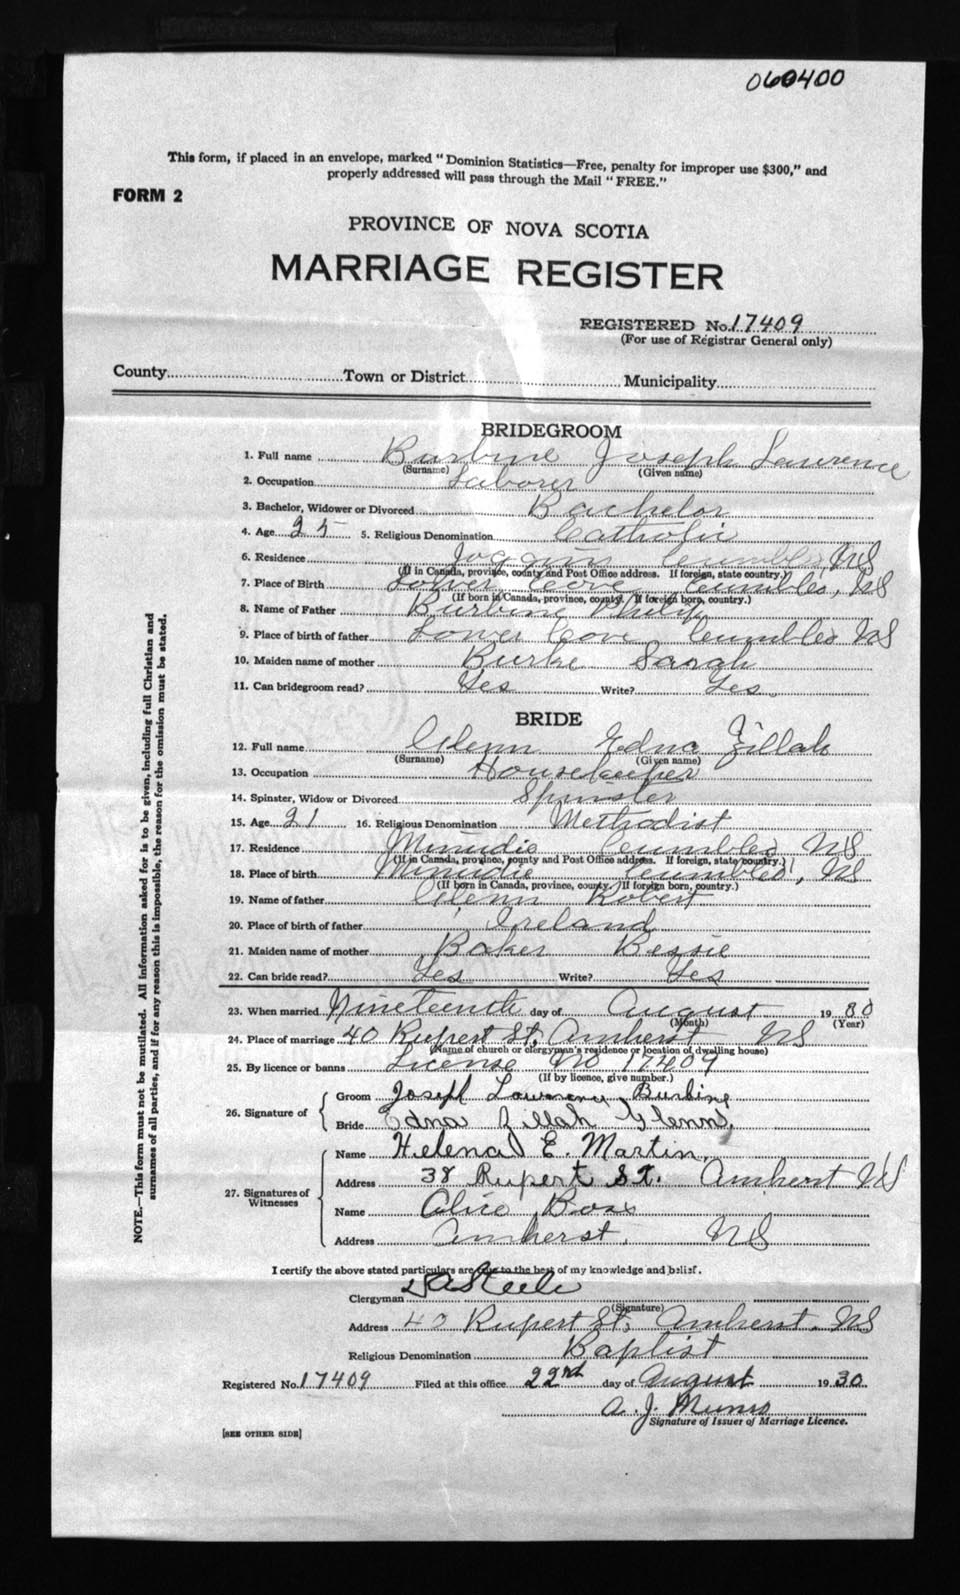 060400
This form, if placed in an envelope, marked "Dominion Statistics—Free, penalty for improper use $300," and
properly addressed will pass through the Mail "FREE."
FORM 2
PROVINCE OF NOVA SCOTIA
MARRIAGE REGISTER
REGISTERED No. 17409
(For use of Registrar General only)
County Town or District Municipality
BRIDEGROOM
1. Full name Burbine Joseph Lawrence
(Surname) (Given name)
2. Occupation Laborer
3. Bachelor, Widower or Divorced Bachelor
4. Age 25 5. Religious Denomination Catholic
6. Residence Joggins Cumbld, NS
(If in Canada, province, county and Post Office address. If foreign, state country.)
7. Place of Birth Lower Cove Cumbled, NS
(If born in Canada, province, county. If foreign born, country.)
8. Name of Father Burbine Philip
9. Place of birth of father Lower Cove Cumbled NS
10. Maiden name of mother Burke Sarah
11. Can bridegroom read? Yes Write? Yes
BRIDE
12. Full name Glenn Edna Zillah
(Surname) (Given name)
13. Occupation Housekeeper
14. Spinster, Widow or Divorced Spinster
15. Age 21 16. Religious Denomination Methodist
17. Residence Minudie Cumbled NS
(If in Canada, province, county and Post Office address. If foreign, state country.)
18. Place of birth Minudie Cumbled, NS
(If born in Canada, province, county. If foreign born, country.)
19. Name of father Glenn Robert
20. Place of birth of father Ireland
21. Maiden name of mother Baker Bessie
22. Can bride read? Yes Write? Yes
23. When married Nineteenth day of August 1930
(Month) (Year)
24. Place of marriage 40 Rupert St, Amherst NS
(Name of church or clergyman's residence or location of dwelling house)
25. By licence or banns License No 17409
(If by licence, give number.)
26. Signature of
Groom Joseph Lawrence Burbine
Bride Edna Zillah Glenn.
27. Signatures of Witnesses
Name Helena E. Martin.
Address 38 Rupert St. Amherst NS
Name Alice Boss
Address Amherst, NS
I certify the above stated particulars are true to the best of my knowledge and belief.
Clergyman Steele
(Signature)
Address 40 Rupert St, Amherst. NS
Religious Denomination Baptist
Registered No. 17409 Filed at this office 22nd day of August 1930
A. J. Munro
Signature of Issuer of Marriage Licence.
[SEE OTHER SIDE]
NOTE.—This form must not be mutilated. All information asked for is to be given, including full Christian and
surnames of all parties, and if for any reason this is impossible, the reason for the omission must be stated.